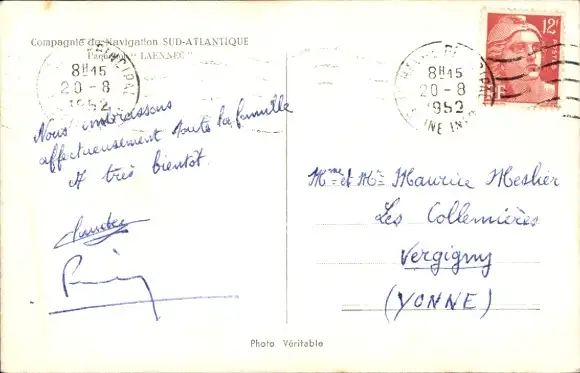 Compagnie de Navigation SUD-ATLANTIQUE
Paquebot "LAENNEC"
8H15
20-8
1952
Nous embrassons
affectueusement toute la famille
A très bientôt.
12F
POSTES
LE HAVRE PRINCIPAL
8H15
20-8
1952
SEINE INFRE
Mme et Mr Maurice Meslier
Les Collemières
Vergigny
(YONNE)
Photo Véritable